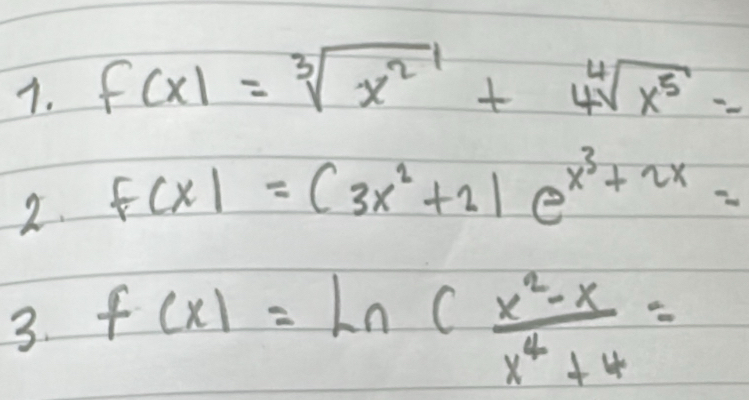 1. f(x) = ∛x² + 4∜x⁵ =
2. f(x) = (3x²+2) e^(x³+2x) =
3. f(x) = Ln ( (x²-x)/(x⁴+4) =